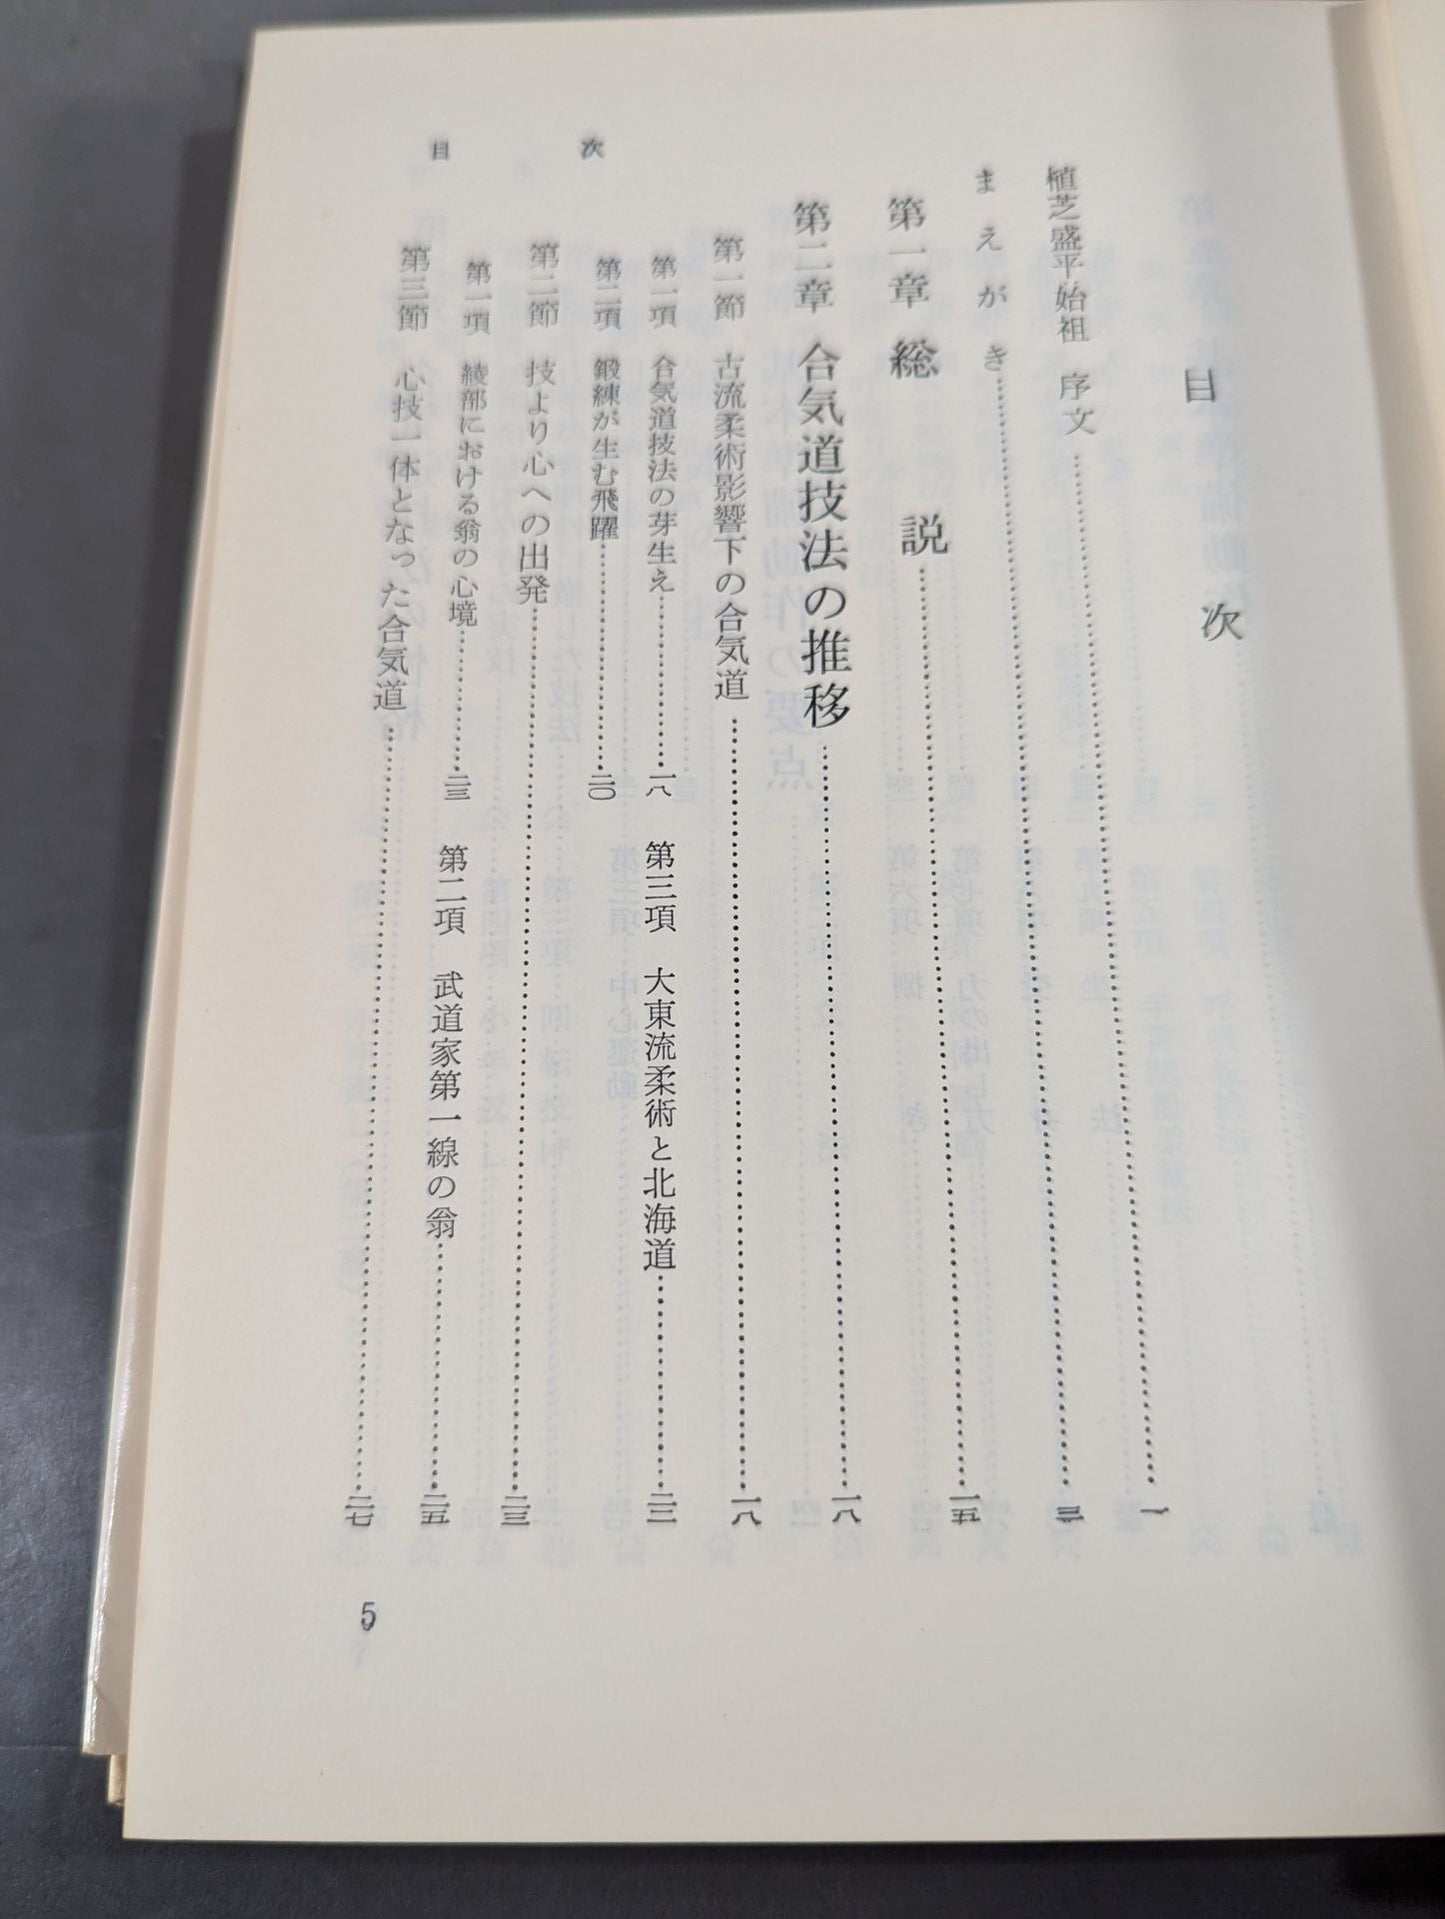 目次
植芝盛平始祖 序文……一
まえがき……三
第一章 総説……一五
第二章 合気道技法の推移……一八
第一節 古流柔術影響下の合気道……一八
第一項 合気道技法の芽生え……一八
第二項 鍛練が生む飛躍……二〇
第三項 大東流柔術と北海道……二二
第二節 技より心への出発……二三
第一項 綾部における翁の心境……二三
第二項 武道家第一線の翁……二五
第三節 心技一体となった合気道……二七
目次
5